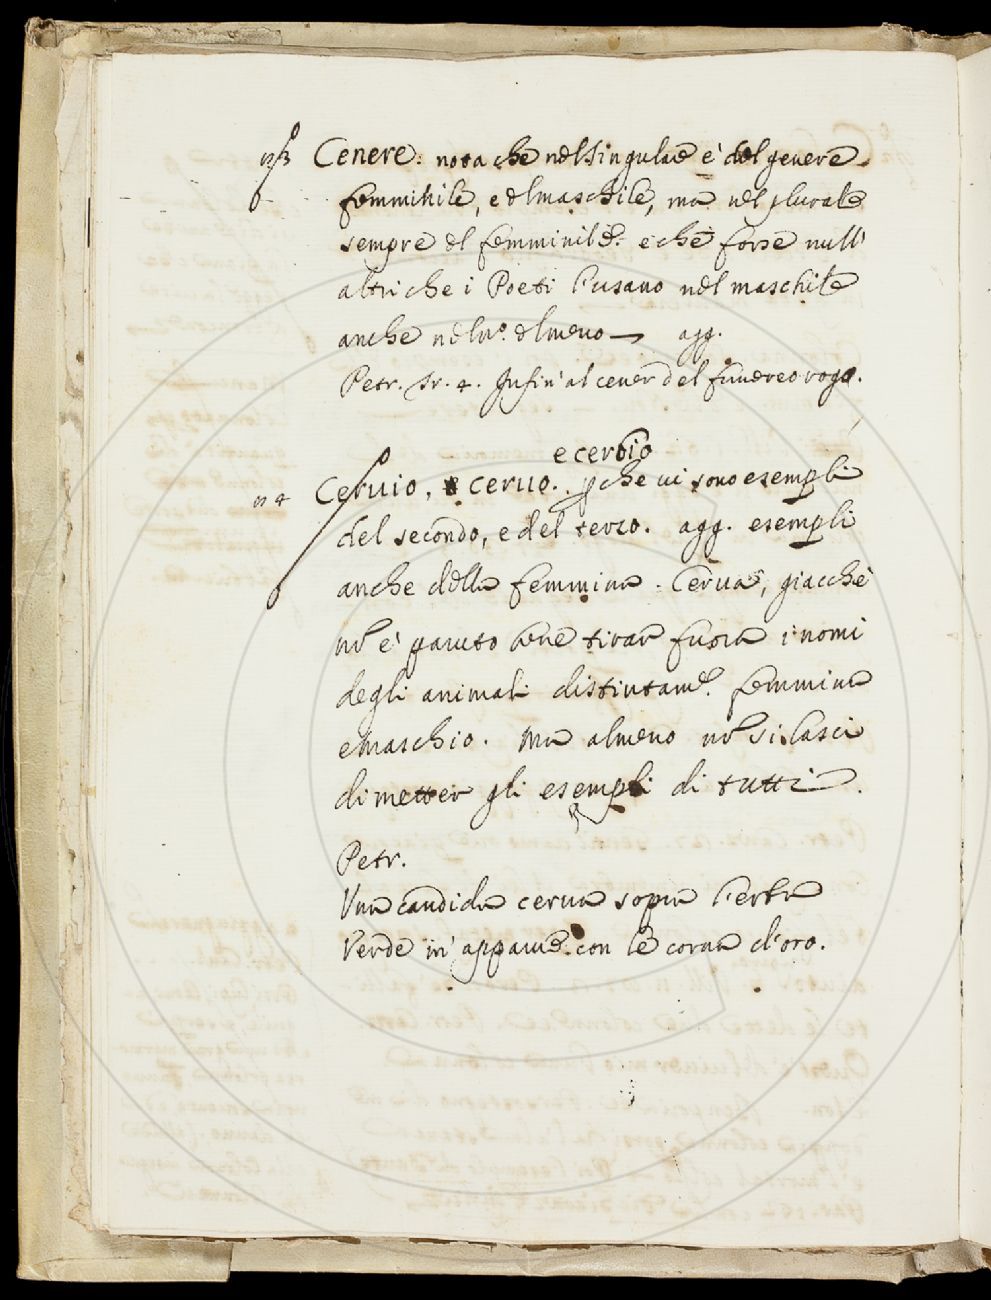 Cenere. nota che nel singulare è del genere
femminile, e del maschile, ma nel plurale
sempre del femminile. e che forse null'
altri che i Poeti l'usano nel maschile
anche nel n.º del meno — agg.
Petr. Infin' al cener del funereo rogo.
e cerbio
n 4 Ceruio, e ceruo. pche ui sono esempli
del secondo, e del terzo. agg. esempli
anche della femmina. Cerua, giacche
nõ è paruto bene tirar fuora i nomi
degli animali distintam.e femmina
e maschio. Ma almeno nõ si lasci
di metter gli esempli di tutti.
Petr.
Una candida cerua sopra l'erba
Verde m' apparue. con le corna d'oro.